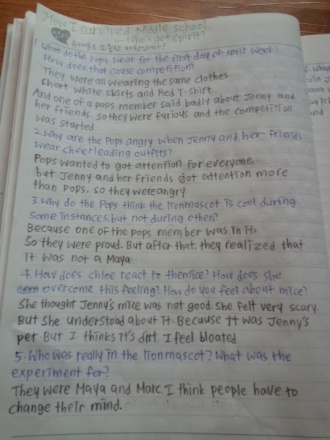 How I survived Middle school
1. What do the Pops wear for the first day of spirit week?
How does that cause competition?
They were all wearing the same clothes
short white skirts and Red T-shirt
And one of a pops member said badly about Jenny and
her friends, so they were furious and the competition
was started
2. Why are the Pops angry when Jenny and her friends
wear cheerleading outfits?
Pops wanted to got attention for everyone,
but Jenny and her friends got attention more
than pops. so they were angry
3. Why do the Pops think the lion mascot is cool during
some instances, but not during other?
Because one of the pops member was in it,
So they were proud. But after that, they realized that
it was not a Maya
4. How does chloe react to the mice? How does she
overcome this feeling? How do you feel about mice?
She thought Jenny's mice was not good. She felt very scary.
But she understood about it. Because it was Jenny's
pet But I think it's dirt I feel bloated
5. Who was really in the lion mascot? What was the
experiment for?
They were Maya and Marc I think people have to
change their mind.